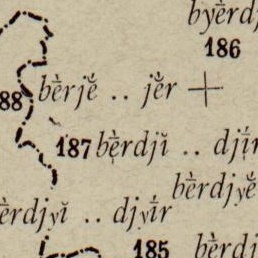 186
88 bèrjĕ .. jĕ́r
187 bèrdjĭ .. djír
bèrdjyĕ́
èrdjyĭ .. djyír
185 bèrdj